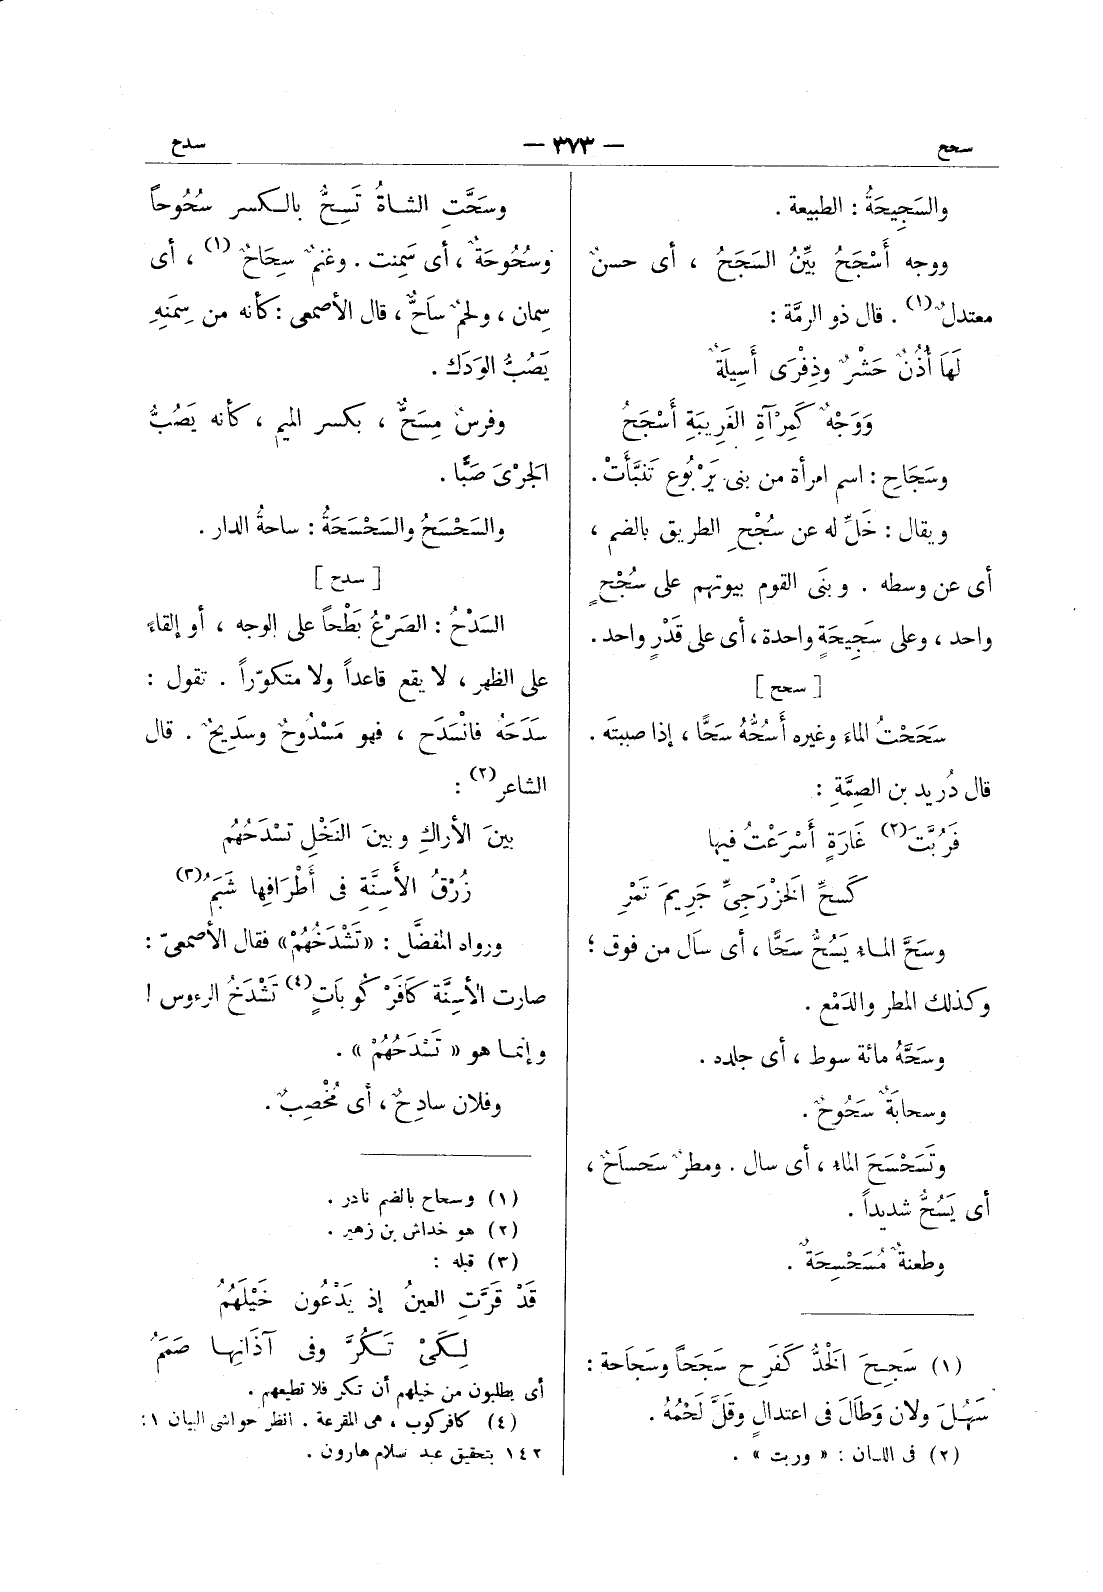 سحح — ٣٧٣ — سدح
والسَجِيحَةُ : الطبيعة .
ووجه أَسْجَحُ بيِّنُ السَجَحُ ، أى حسنٌ
معتدلٌ(١) . قال ذو الرمَّة :
لَهَا أُذُنٌ حَشْرٌ وذِفْرَى أَسِيلَةٌ
وَوَجْهٌ كَمِرْآةِ الغَرِيبَةِ أَسْجَحُ
وسَجَاحِ : اسم امرأة من بنى يَرْبُوع تَنَبَّأَتْ .
ويقال : خَلِّ له عن سُجْحِ الطريق بالضم ،
أى عن وسطه . وبنَى القوم بيوتهم على سُجْحٍ
واحد ، وعلى سَجِيحَةٍ واحدة ، أى على قَدْرٍ واحد .
[ سحح ]
سَحَحْتُ الماءَ وغيره أَسُحُّهُ سَحًّا ، إذا صببتَه .
قال دُريد بن الصِمَّةِ :
فَرُبَّتَ(٢) غَارَةٍ أَسْرَعْتُ فيها
كَسحِّ الخزْرَجِىِّ جَرِيمَ تَمْرِ
وسَحَّ الماء يَسُحُّ سَحًّا ، أى سَال من فوق ؛
وكذلك المطر والدَمْع .
وسَحَّهُ مائة سوط ، أى جلده .
وسحابَةٌ سَحُوحٌ .
وتَسَحْسَحَ الماء ، أى سال . ومطرٌ سَحساحٌ ،
أى يَسُحُّ شديداً .
وطعنةٌ مُسَحْسِحَةٌ .
(١) سَجِحَ الخدُّ كَفَرِح سَجَحاً وسَجَاحة :
سَهُلَ ولان وَطَالَ فى اعتدالٍ وقَلَّ لَحْمُهُ .
(٢) فى اللسان : « وربت » .
وسَحَّتِ الشاةُ تَسِحُّ بالكسر سُحُوحاً
وسُحُوحَةً ، أى سَمِنت . وغنمٌ سِحَاحٌ(١) ، أى
سِمان ، ولحمٌ ساَحٌّ ، قال الأصمعى : كأنه من سِمَنِهِ
يَصُبُّ الوَدَك .
وفرسٌ مِسَحٌّ ، بكسر الميم ، كأنه يَصُبُّ
الجرْىَ صَبًّا .
والسَحْسَحُ والسَحْسَحَةُ : ساحةُ الدار .
[ سدح ]
السَدْحُ : الصَرْعُ بَطْحاً على الوجه ، أو إلقاءً
على الظهر ، لا يقع قاعداً ولا متكوّراً . تقول :
سَدَحَهُ فانْسَدَح ، فهو مَسْدُوحٌ وسَدِيحٌ . قال
الشاعر(٢) :
بينَ الأراكِ وبينَ النَخْلِ تسْدَحُهُم
زُرْقُ الأَسِنَّةِ فى أَطْرَافِها شَبَمُ(٣)
ورواه المفضَّل : «تَشْدَخُهُمْ» فقال الأصمعىّ :
صارت الأسِنَّة كَافَرْ كُوباَتٍ(٤) تَشْدَخُ الرءوس !
وإنما هو « تَسْدَحُهُمْ » .
وفلان سادِحٌ ، أى مُخْصِبٌ .
(١) وسحاح بالضم نادر .
(٢) هو خداش بن زهير .
(٣) قبله :
قَدْ قَرَّتِ العينُ إذ يَدْعُون خَيْلَهُمُ
لِكَىْ تَكُرَّ وفى آذَانِها صَمَمُ
أى يطلبون من خيلهم أن تكر فلا تطيعهم .
(٤) كافركوب ، هى المقرعة . انظر حواشى البيان ١ :
١٤٢ بتحقيق عبد سلام هارون .